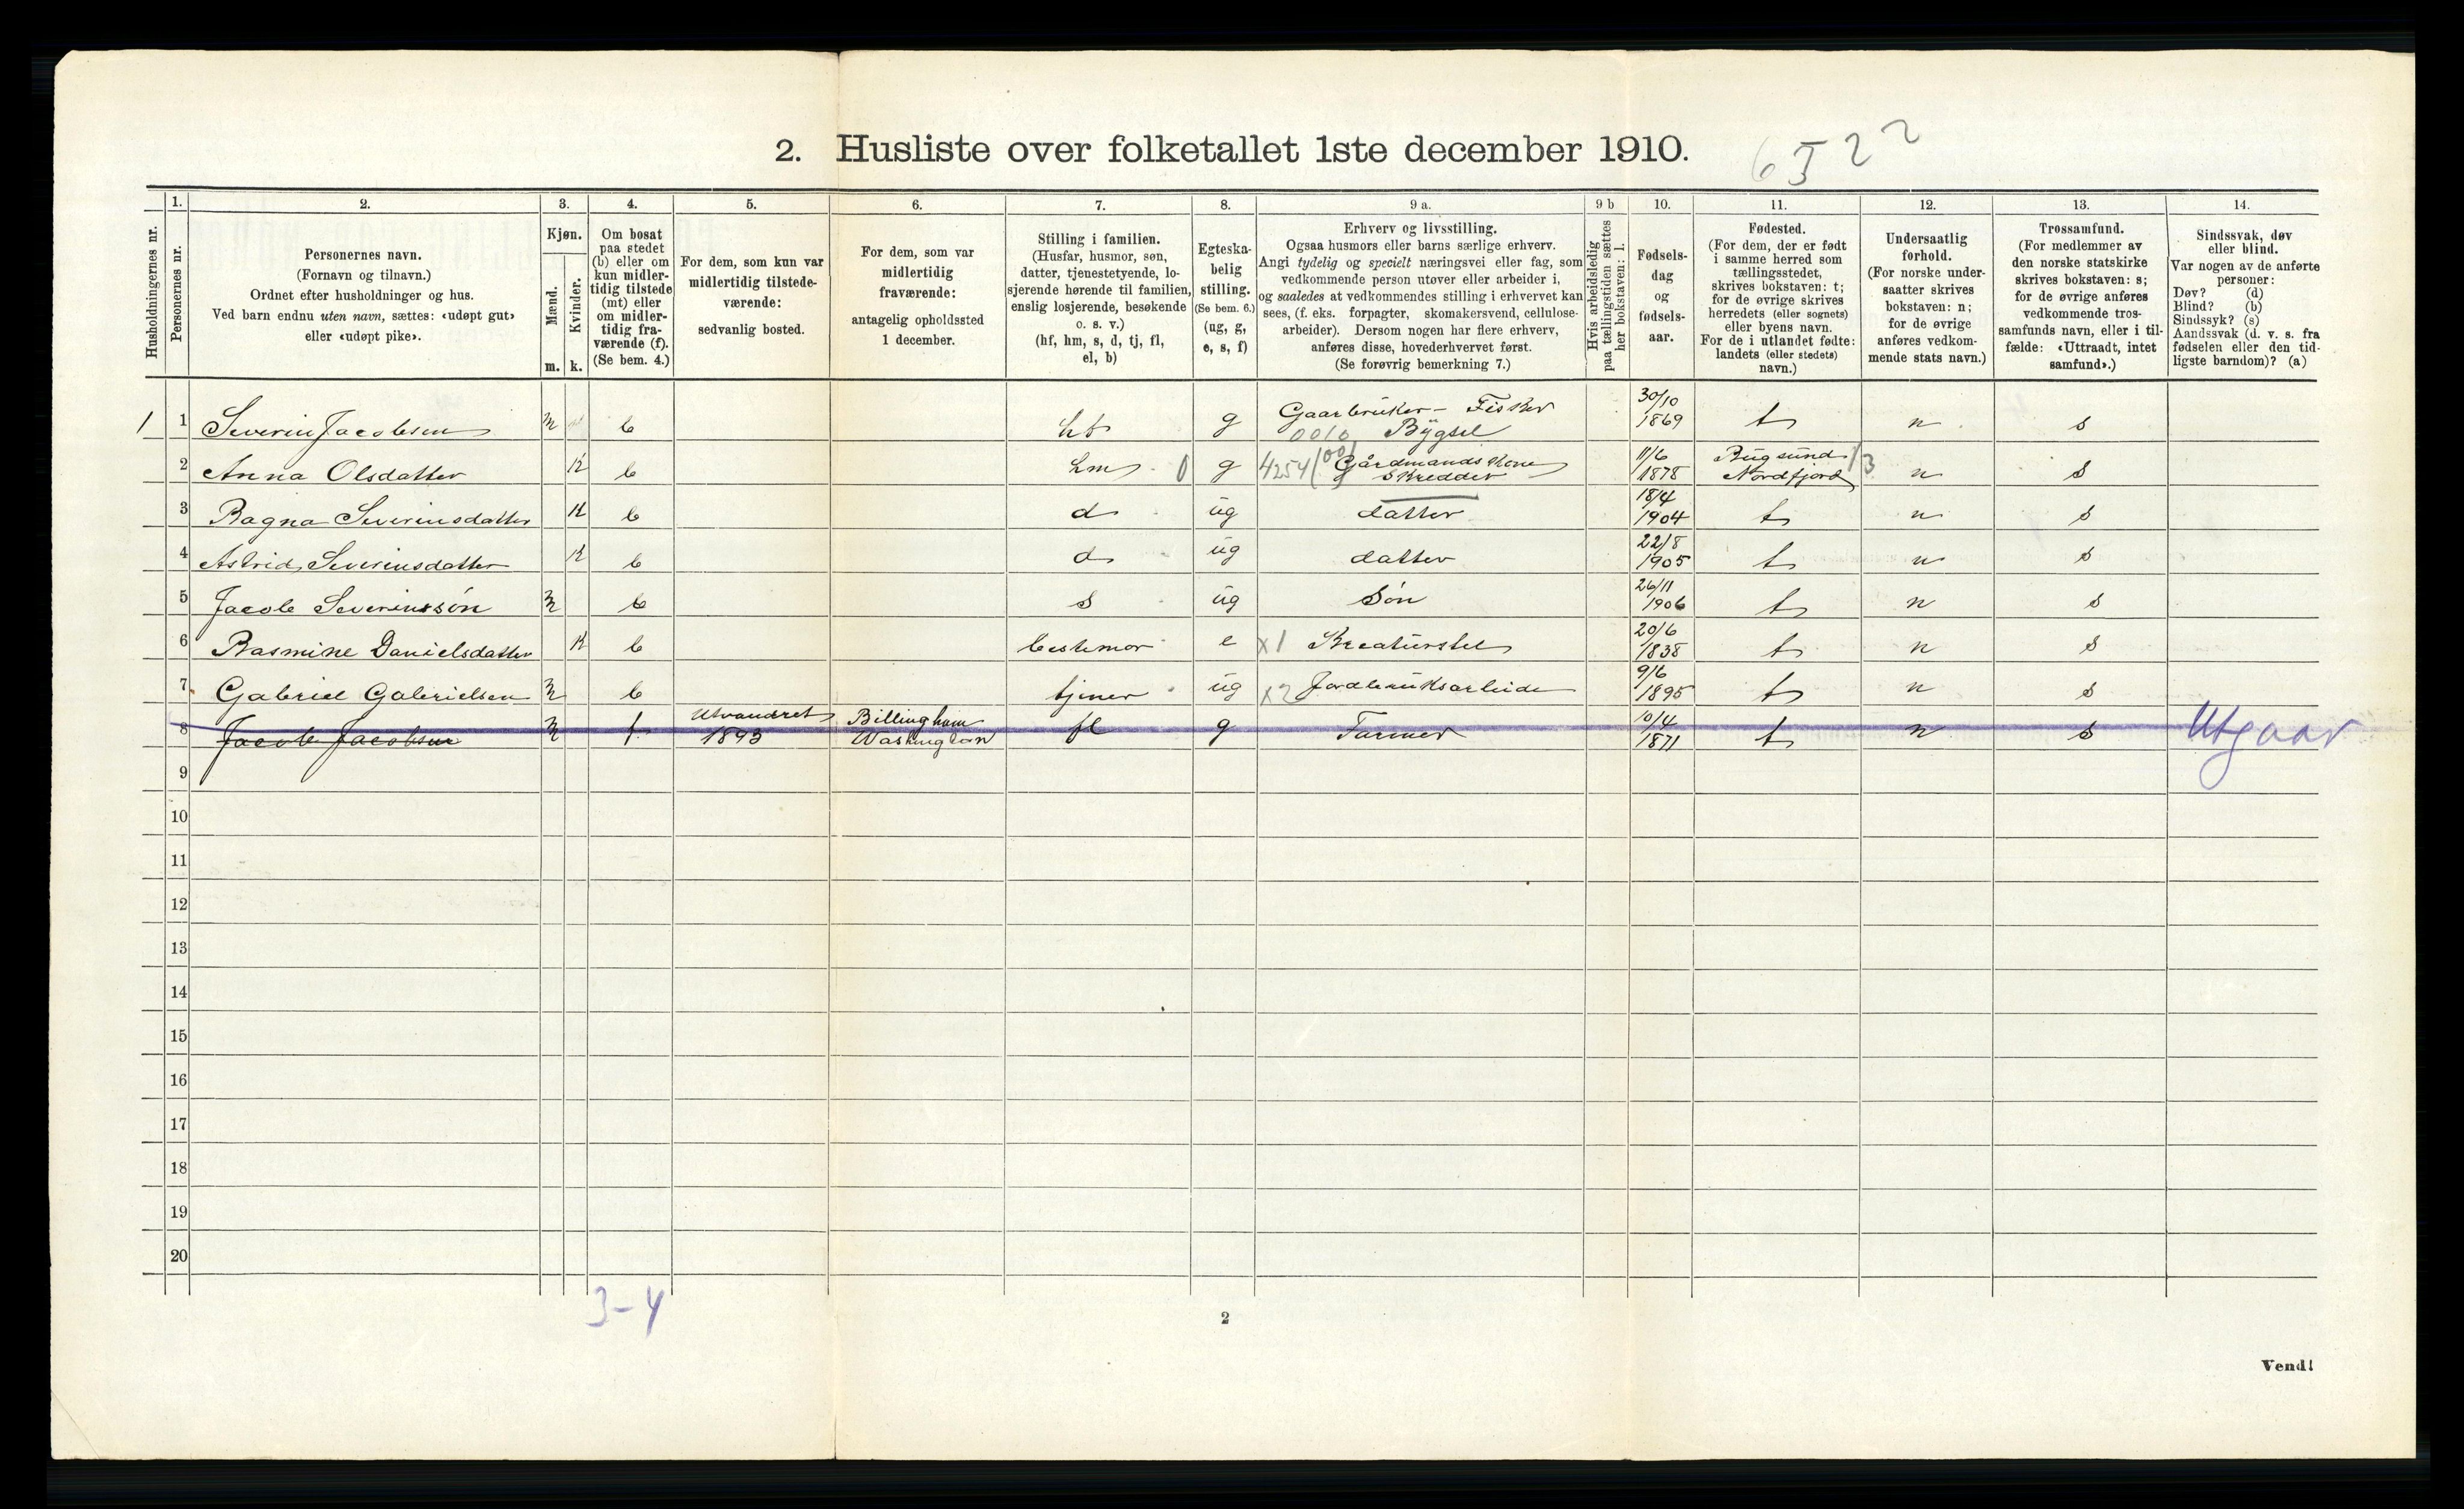 2. Husliste over folketallet 1ste december 1910.
6522
Husholdningernes nr.
1.
Personernes nr.
2.
Personernes navn.
(Fornavn og tilnavn.)
Ordnet efter husholdninger og hus.
Ved barn endnu uten navn, sættes: «udøpt gut»
eller «udøpt pike».
3.
Kjøn.
Mænd.
m.
Kvinder.
k.
4.
Om bosat
paa stedet
(b) eller om
kun midler-
tidig tilstede
(mt) eller
om midler-
tidig fra-
værende (f).
(Se bem. 4.)
5.
For dem, som kun var
midlertidig tilstede-
værende:
sedvanlig bosted.
6.
For dem, som var
midlertidig
fraværende:
antagelig opholdssted
1 december.
7.
Stilling i familien.
(Husfar, husmor, søn,
datter, tjenestetyende, lo-
sjerende hørende til familien,
enslig losjerende, besøkende
o. s. v.)
(hf, hm, s, d, tj, fl,
el, b)
8.
Egteska-
belig
stilling.
(Se bem. 6.)
(ug, g,
e, s, f)
9 a.
Erhverv og livsstilling.
Ogsaa husmors eller barns særlige erhverv.
Angi tydelig og specielt næringsvei eller fag, som
vedkommende person utøver eller arbeider i,
og saaledes at vedkommendes stilling i erhvervet kan
sees, (f. eks. forpagter, skomakersvend, cellulose-
arbeider). Dersom nogen har flere erhverv,
anføres disse, hovederhvervet først.
(Se forøvrig bemerkning 7.)
9 b
Hvis arbeidsledig
paa tællingstiden sættes
her bokstaven: l.
10.
Fødsels-
dag
og
fødsels-
aar.
11.
Fødested.
(For dem, der er født
i samme herred som
tællingsstedet,
skrives bokstaven: t;
for de øvrige skrives
herredets (eller sognets)
eller byens navn.
For de i utlandet fødte:
landets (eller stedets)
navn.)
12.
Undersaatlig
forhold.
(For norske under-
saatter skrives
bokstaven: n;
for de øvrige
anføres vedkom-
mende stats navn.)
13.
Trossamfund.
(For medlemmer av
den norske statskirke
skrives bokstaven: s;
for de øvrige anføres
vedkommende tros-
samfunds navn, eller i til-
fælde: «Uttraadt, intet
samfund».)
14.
Sindssvak, døv
eller blind.
Var nogen av de anførte
personer:
Døv? (d)
Blind? (b)
Sindssyk? (s)
Aandssvak (d. v. s. fra
fødselen eller den tid-
ligste barndom)? (a)
1 1 Severin Jacobsen m b hf g Gaarbruker - Fisker 0010 Bygsel 30/10 1869 t n s
2 Anna Olsdatter K b hm 0 g 4254 Gårdmands Kone Skredder 11/6 1878 Bugsund Nordfjord 13 n s
3 Ragna Severinsdatter K b d ug datter 18/4 1904 t n s
4 Astrid Severinsdatter K b d ug datter 22/8 1905 t n s
5 Jacob Severinssøn m b s ug Søn 26/11 1906 t n s
6 Rasmine Danielsdatter K b bestemor e x1 Kreaturstel 20/6 1838 t n s
7 Gabriel Gabrielsen m b tjener ug x2 Jordbruksarbeide 9/6 1895 t n s
8 Jacob Jacobsen m f Utvandret 1893 Billingham Washington fl g Farmer 10/4 1871 t n s Utgaar
9
10
11
12
13
14
15
16
17
18
19
20
3-4
2
Vend!